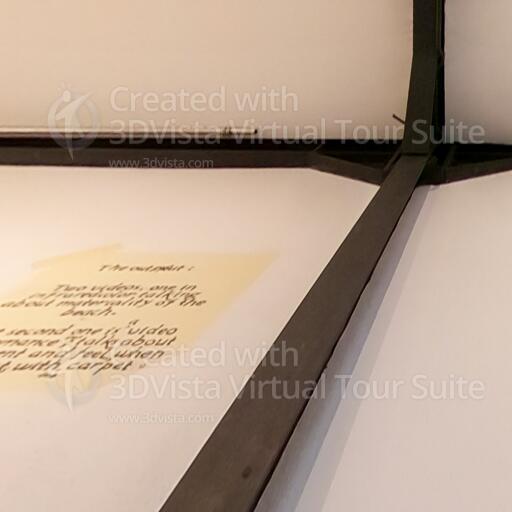 Created with
3DVista Virtual Tour Suite
www.3dvista.com
The output:
Two videos, one in
infraredcolor, talking
about materiality of the
beach.
second one is "video
talk about
and feel when
with carpet"
Created with
3DVista Virtual Tour Suite
www.3dvista.com